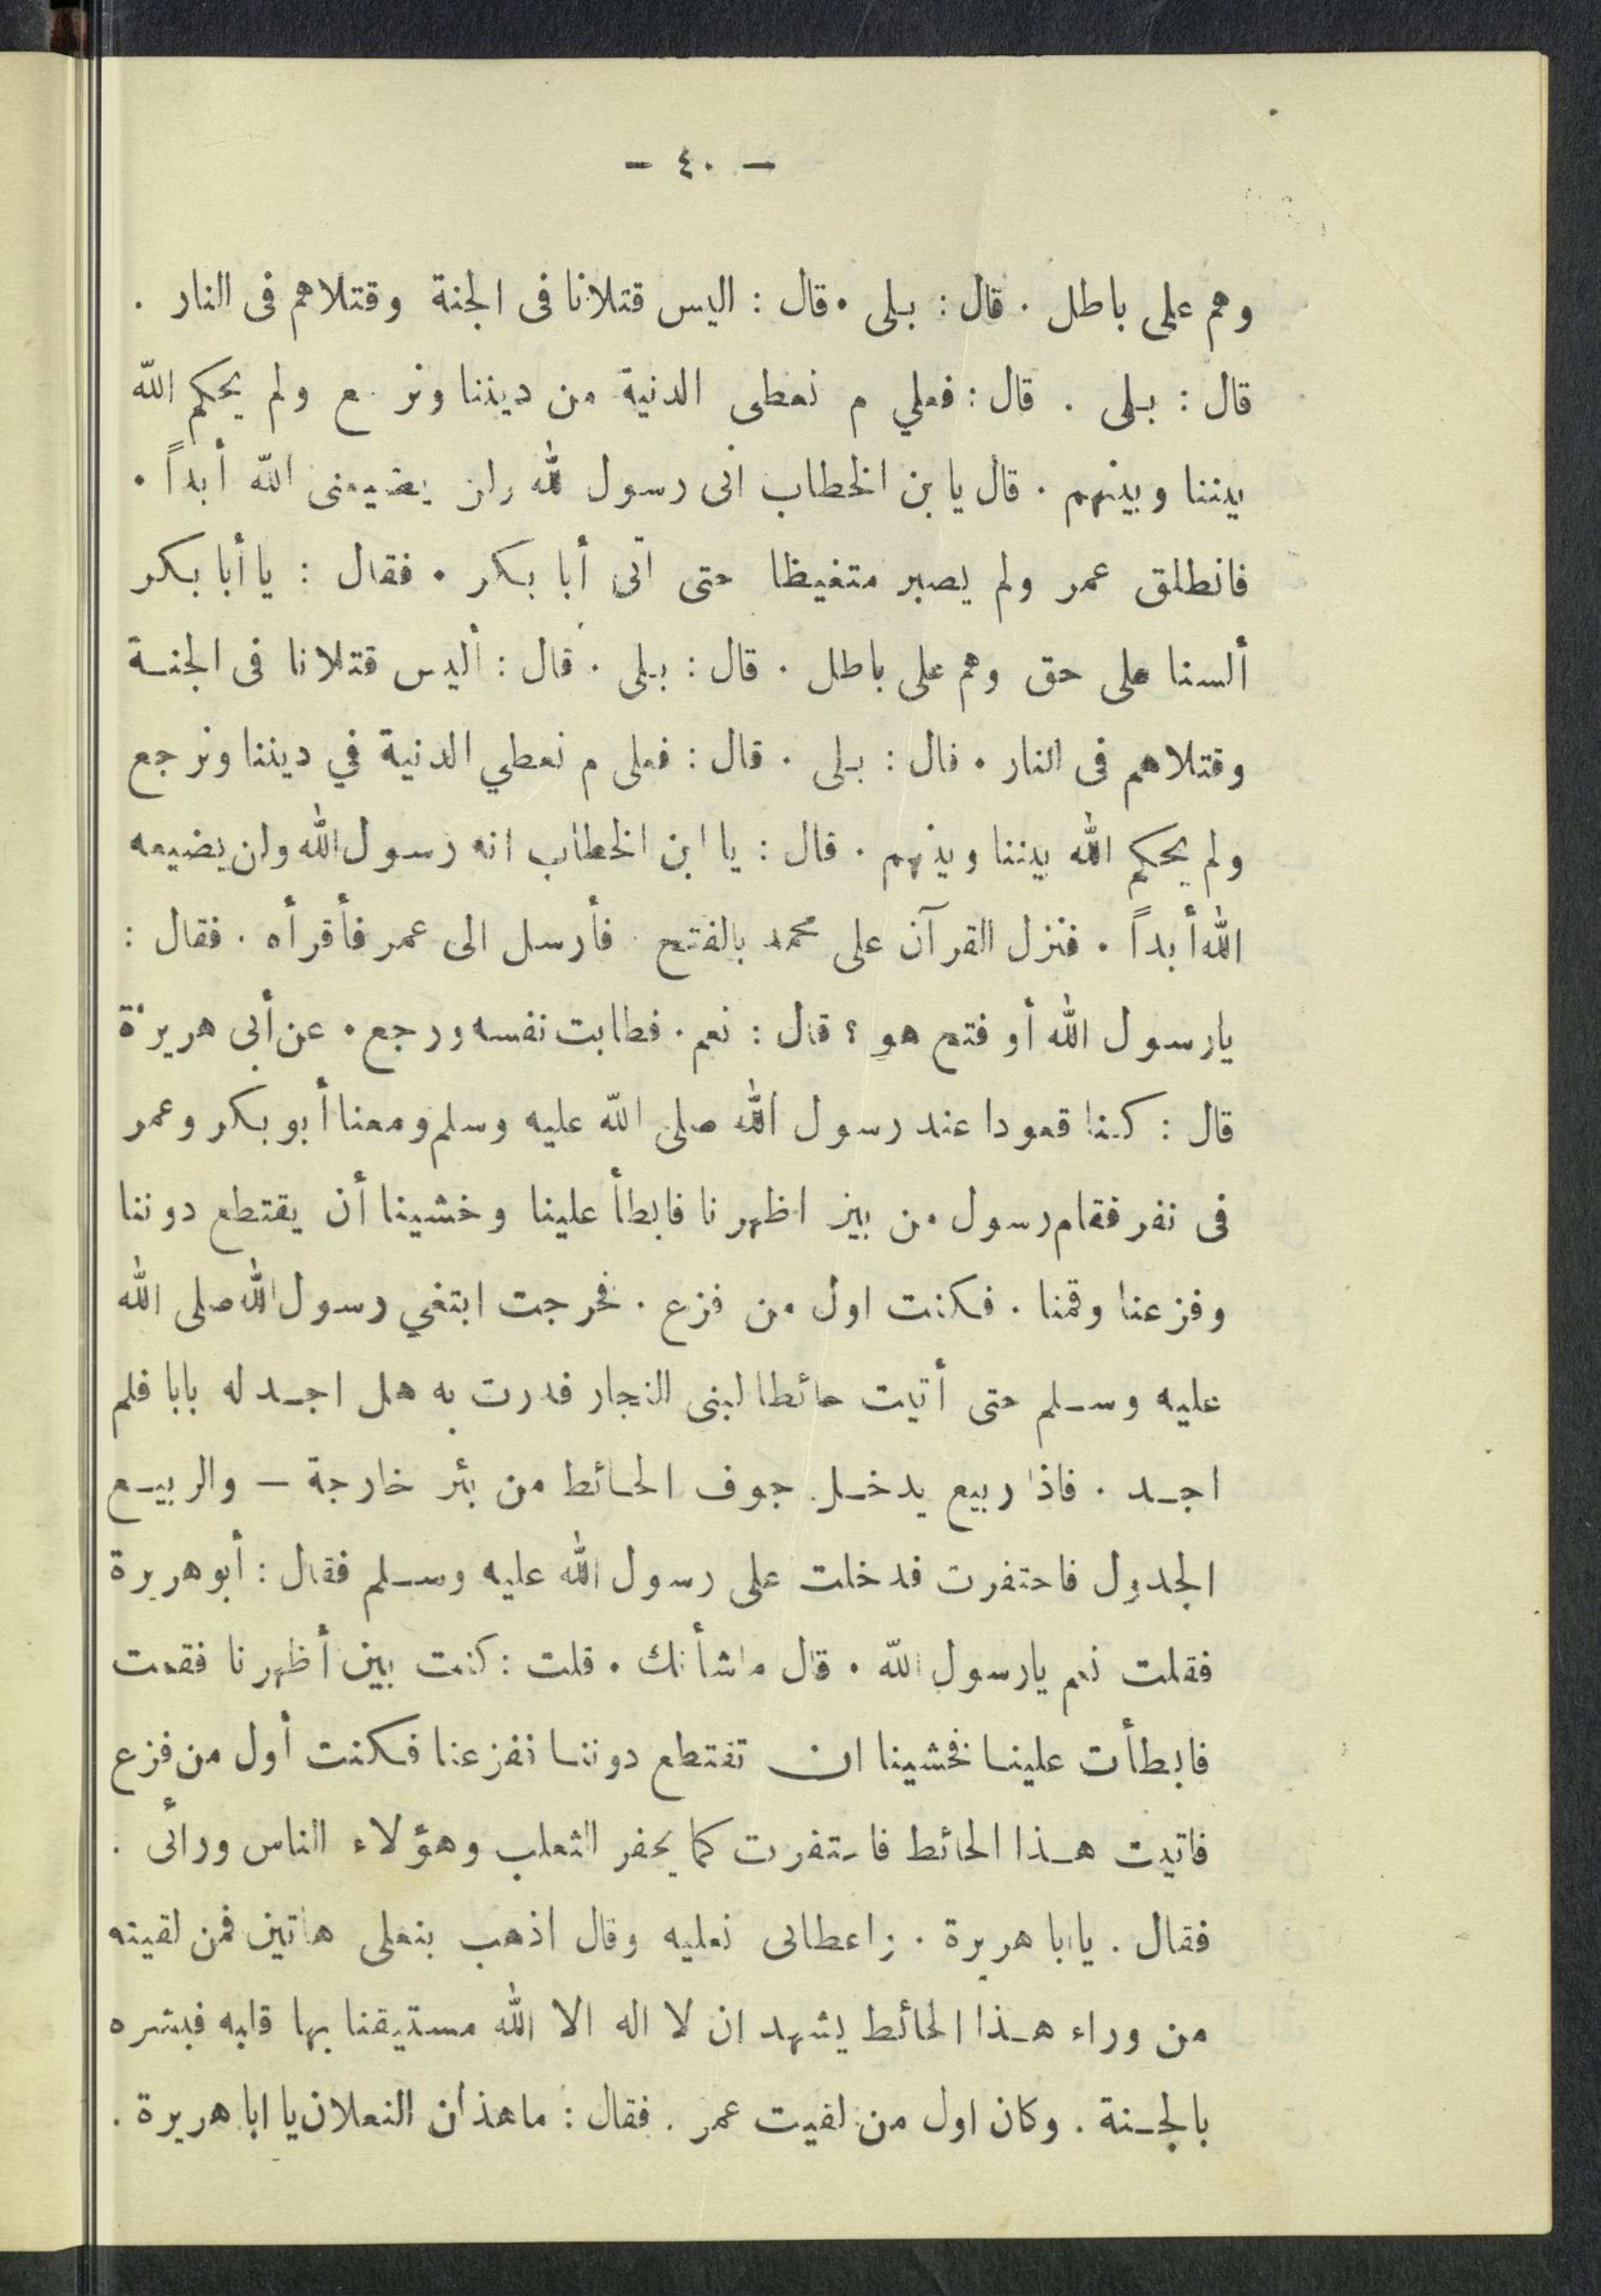 - ٤٠ -
وهم على باطل . قال : بلى . قال : اليس قتلانا فى الجنة وقتلاهم فى النار .
قال : بلى . قال : فعلي م نعطى الدنية من ديننا ونر ع ولم يحكم الله
بيننا وبينهم . قال يا بن الخطاب انى رسول الله ولن يضيعنى الله أبداً .
فانطلق عمر ولم يصبر متغيظا حتى أتى أبا بكر . فقال : يا أبا بكر
ألسنا على حق وهم على باطل . قال : بلى . قال : أليس قتلانا فى الجنة
وقتلاهم فى النار . قال : بلى . قال : فعلى م نعطي الدنية في ديننا ونرجع
ولم يحكم الله بيننا وبينهم . قال : يا ابن الخطاب انه رسول الله ولن يضيعه
الله أبداً . فنزل القرآن على محمد بالفتح . فأرسل الى عمر فأقرأه . فقال :
يارسول الله أو فتح هو ؟ قال : نعم . فطابت نفسه ورجع . عن أبى هريرة
قال : كنا قعودا عند رسول الله صلى الله عليه وسلم ومعنا أبو بكر وعمر
فى نفر فقام رسول من بين اظهرنا فابطأ علينا وخشينا أن يقتطع دوننا
وفزعنا وقمنا . فكنت اول من فزع . فخرجت ابتغي رسول الله صلى الله
عليه وسلم حتى أتيت حائطا لبنى النجار فدرت به هل اجد له بابا فلم
اجد . فاذا ربيع يدخل جوف الحائط من بئر خارجة — والربيع
الجدول فاحتفرت فدخلت على رسول الله عليه وسلم فقال : أبو هريرة
فقلت نعم يارسول الله . قال ماشأنك . قلت : كنت بين أظهرنا فقمت
فابطأت علينا فخشينا ان تقتطع دوننا ففزعنا فكنت أول من فزع
فاتيت هذا الحائط فاحتفرت كما يحفر الثعلب وهؤلاء الناس ورائى .
فقال . يا ابا هريرة . واعطانى نعليه وقال اذهب بنعلى هاتين فمن لقيته
من وراء هذا الحائط يشهد ان لا اله الا الله مستيقنا بها قلبه فبشره
بالجنة . وكان اول من لقيت عمر . فقال : ماهذان النعلان يا ابا هريرة .